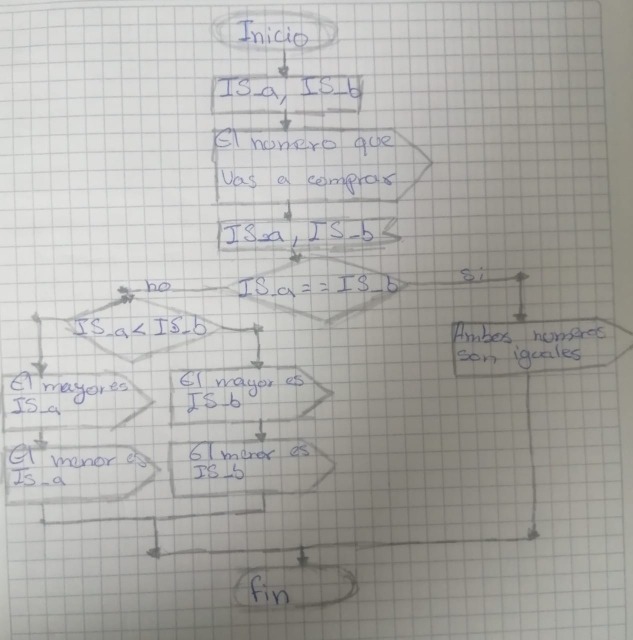 Inicio
IS_a, IS_b
El numero que
Vas a comprar
IS_a, IS_b
no
IS_a == IS_b
si
IS_a < IS_b
Ambos numeros
son iguales
El mayor es
IS_a
El mayor es
IS_b
El menor es
IS_a
El menor es
IS_b
fin